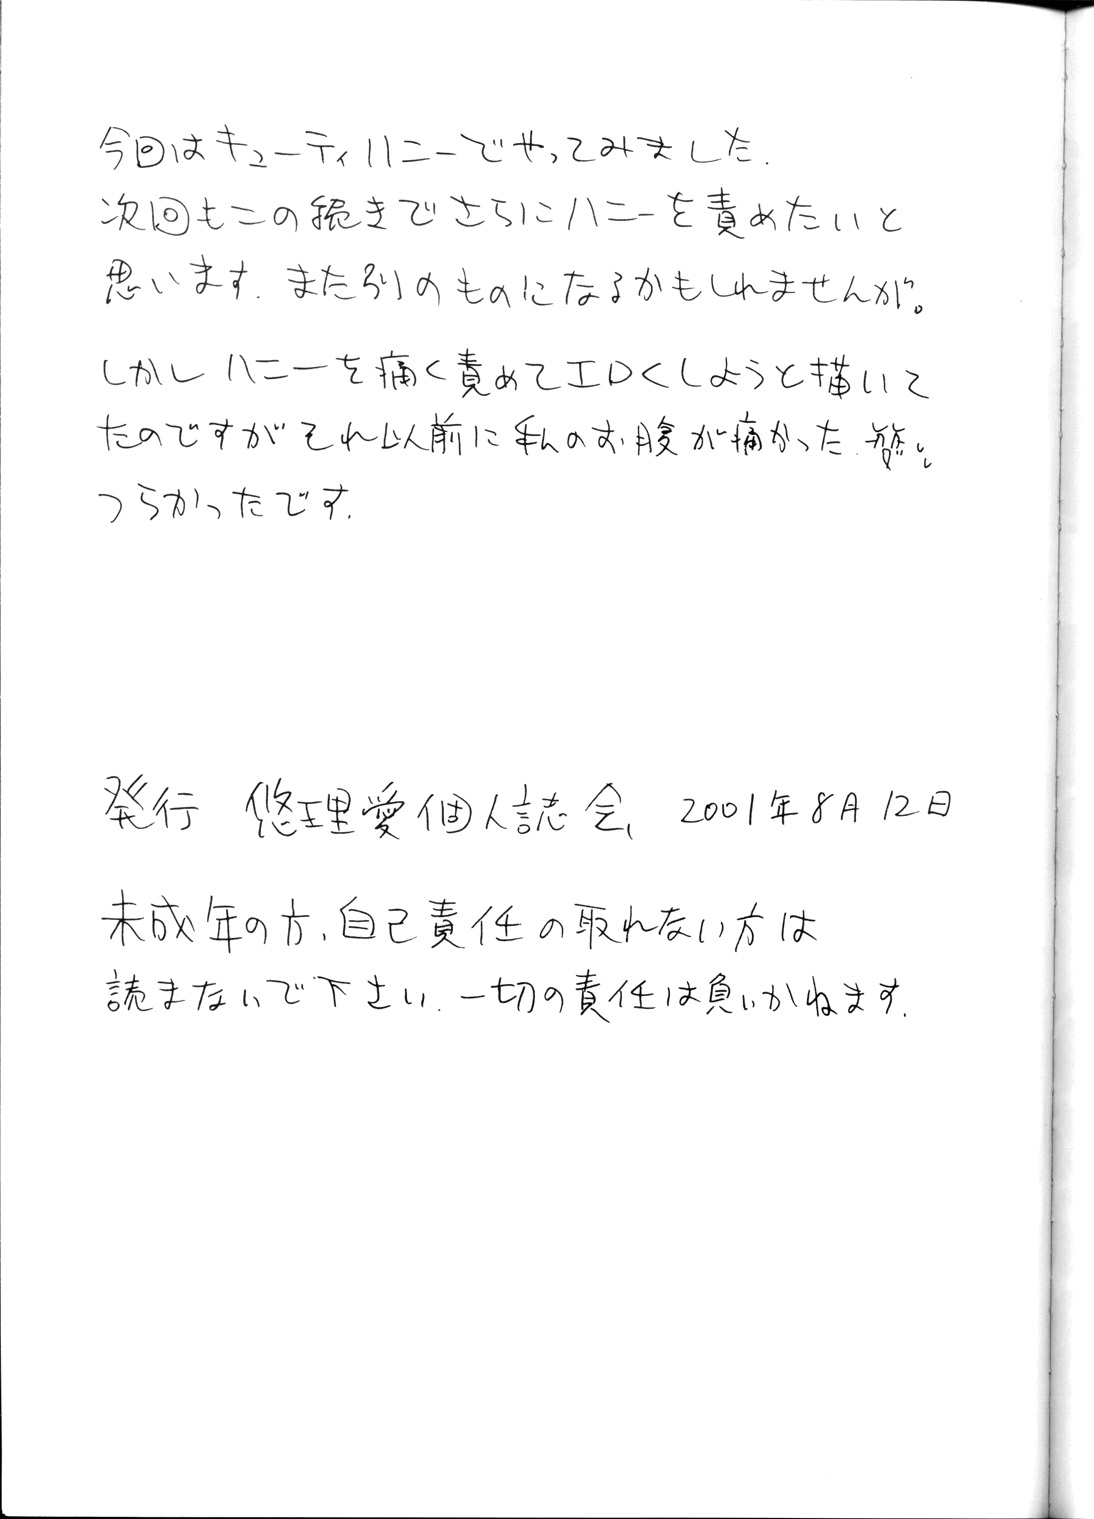 今回はキューティハニーでやってみました.
次回もこの続きでさらにハニーを責めたいと
思います. また別のものになるかもしれませんが。
しかしハニーを痛く責めてエロくしようと描いて
たのですがそれ以前に私のお腹が痛かった.
つらかったです.
発行 悠理愛個人誌会、 2001年8月12日
未成年の方、自己責任の取れない方は
読まないで下さい. 一切の責任は負いかねます.